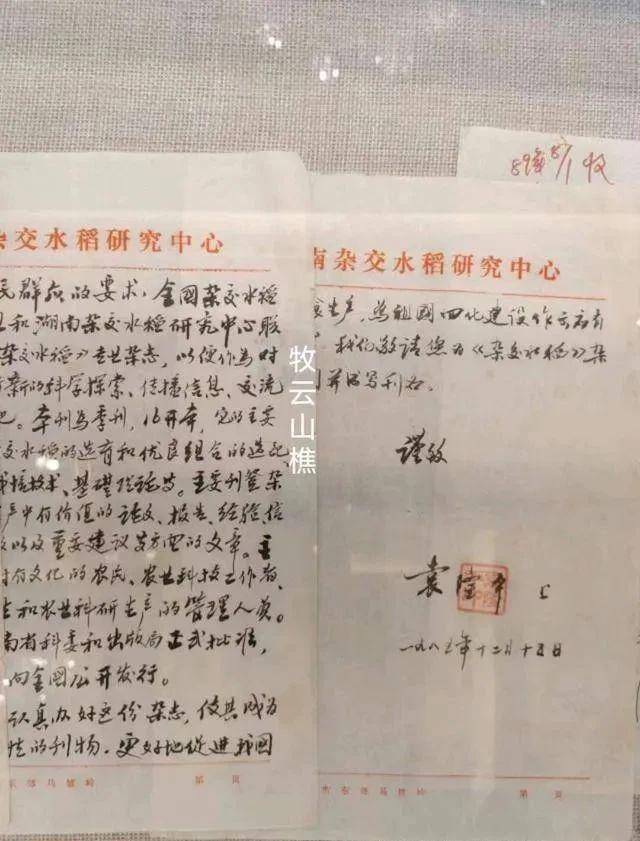 杂交水稻研究中心
民群众的要求，全国杂交水稻
和湖南杂交水稻研究中心联
杂交水稻》专业杂志，以便作为对
新的科学探索、传播信息、交流
本刊为季刊，16开本，它的主要
交水稻的选育和优良组合的选配
栽培技术、基础理论等。主要刊登杂
产中有价值的论文、报告、经验、信
以及重要建议等方面的文章。主
对有文化的农民、农业科技工作者、
和农业科研生产的管理人员。
南省科委和出版局正式批准，
向全国公开发行。
认真办好这份杂志，使其成为
性的刊物，更好地促进我国
东郊马坡岭 第 页
89藏87/1 收
南杂交水稻研究中心
食生产，为祖国四化建设作出
我们敬请您为《杂交水稻》杂
并书写刊名。
谨致
袁隆平 上
一九八五年十二月十五日
市东郊马坡岭 第 页
牧云山樵